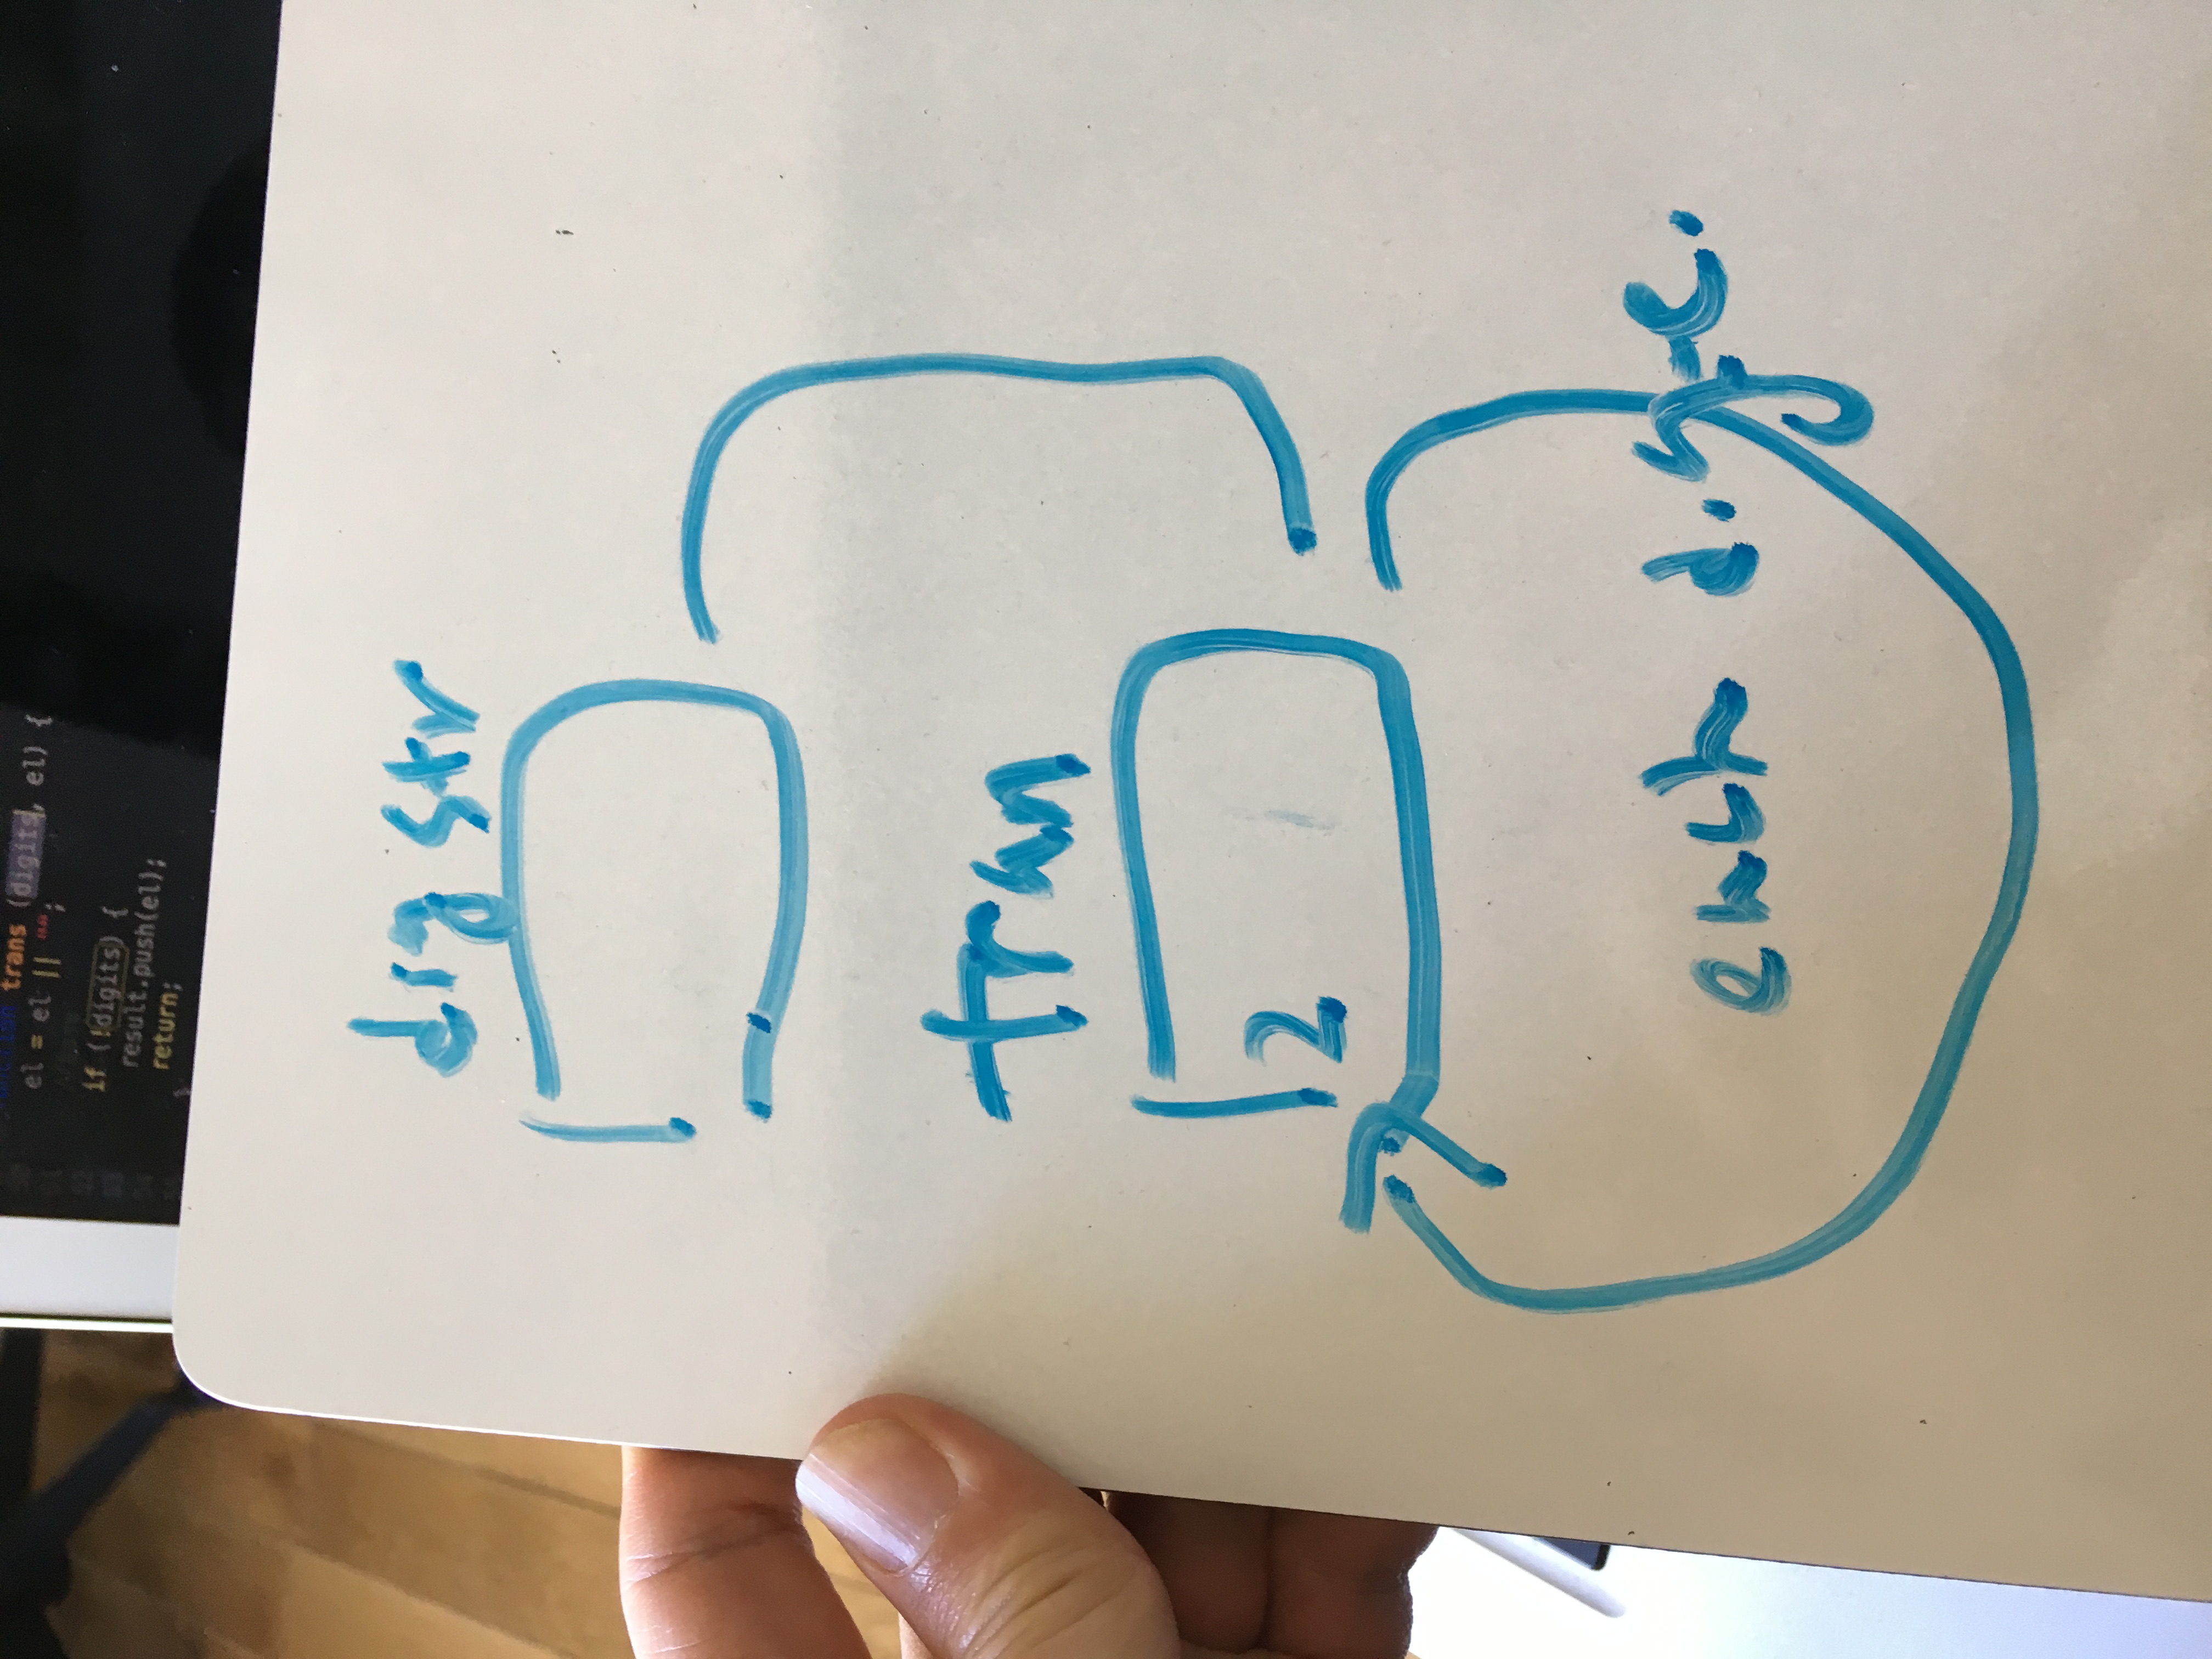 function trans (digits, el) {
el = el || "";
if (!digits) {
result.push(el);
return;
}
dig str
tran
2
each